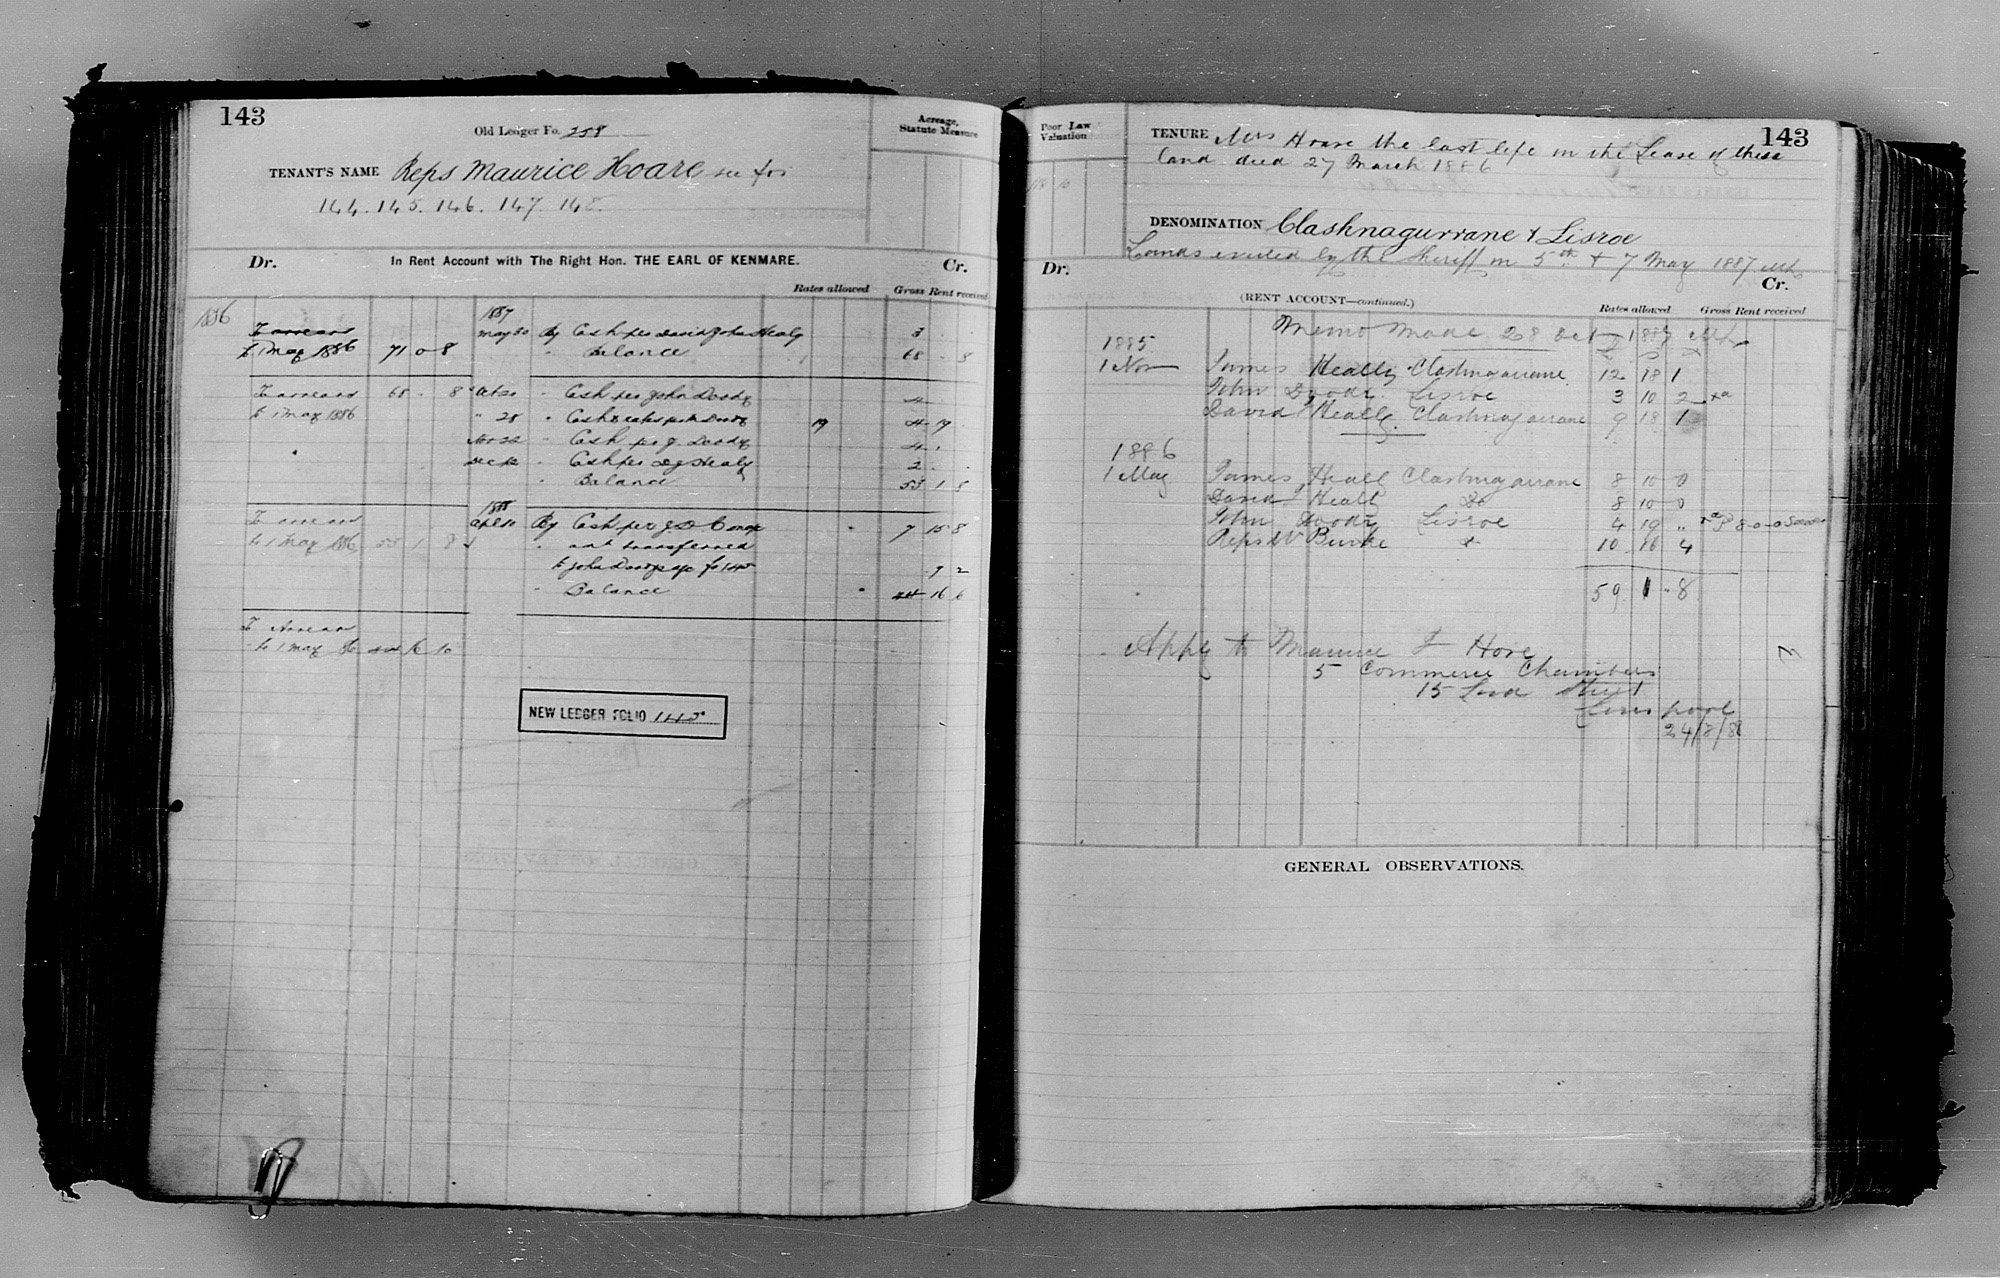 143
Old Ledger Fo. 258
Acreage, Statute Measure
TENANT'S NAME Reps Maurice Hoare see fos
144. 145. 146. 147. 148.
Dr. In Rent Account with The Right Hon. THE EARL OF KENMARE. Cr.
Rates allowed Gross Rent received
1886 1887
To arrears May 30 By Cash per David & John Healy 3 . .
to 1 May 1886 71 0 8 " Balance 68 . 8
To arrears 68 . 8 " Cash per John Doody 4
to 1 May 1886 " 28 " Cash & rates per Doody 19 4 19 .
Nov 22 " Cash per J. Doody 4 1 .
Dec " Cash per Healy 2 . .
" Balance 53 1 8
1888
To arrears Apl 10 By Cash per 7 15 8
to 1 May 1886 53 1 8 " amt transferred
to John Doody a/c fo 145 9 2
" Balance 44 16 6
To Arrears
to 1 May 86 44 16 10
NEW LEDGER FOLIO 145
Poor Law Valuation
TENURE Mrs Hoare the last life in the Lease of these
land died 27 March 1886
143
DENOMINATION Clashnagurrane & Lisroe
Lands evicted by the Sheriff on 5th & 7 May 1887
Dr. Cr.
(RENT ACCOUNT—continued.) Rates allowed Gross Rent received
Memo Made 28 Oct 1887
1885
1 Nov James Healy Clashnagarrane 12 18 1
John Doody Lisroe 3 10 2
David Healy Clashnagarrane 9 18 1
1886
1 May James Healy Clashnagarrane 8 10 0
David Healy Do 8 10 0
John Doody Lisroe 4 19 " 8-0-0
Reps W Burke 10 16 4
59 1 8
Apply to Maurice F Hore
5 Commerce Chambers
15 Lord Street
Liverpool
24/8/86
GENERAL OBSERVATIONS.